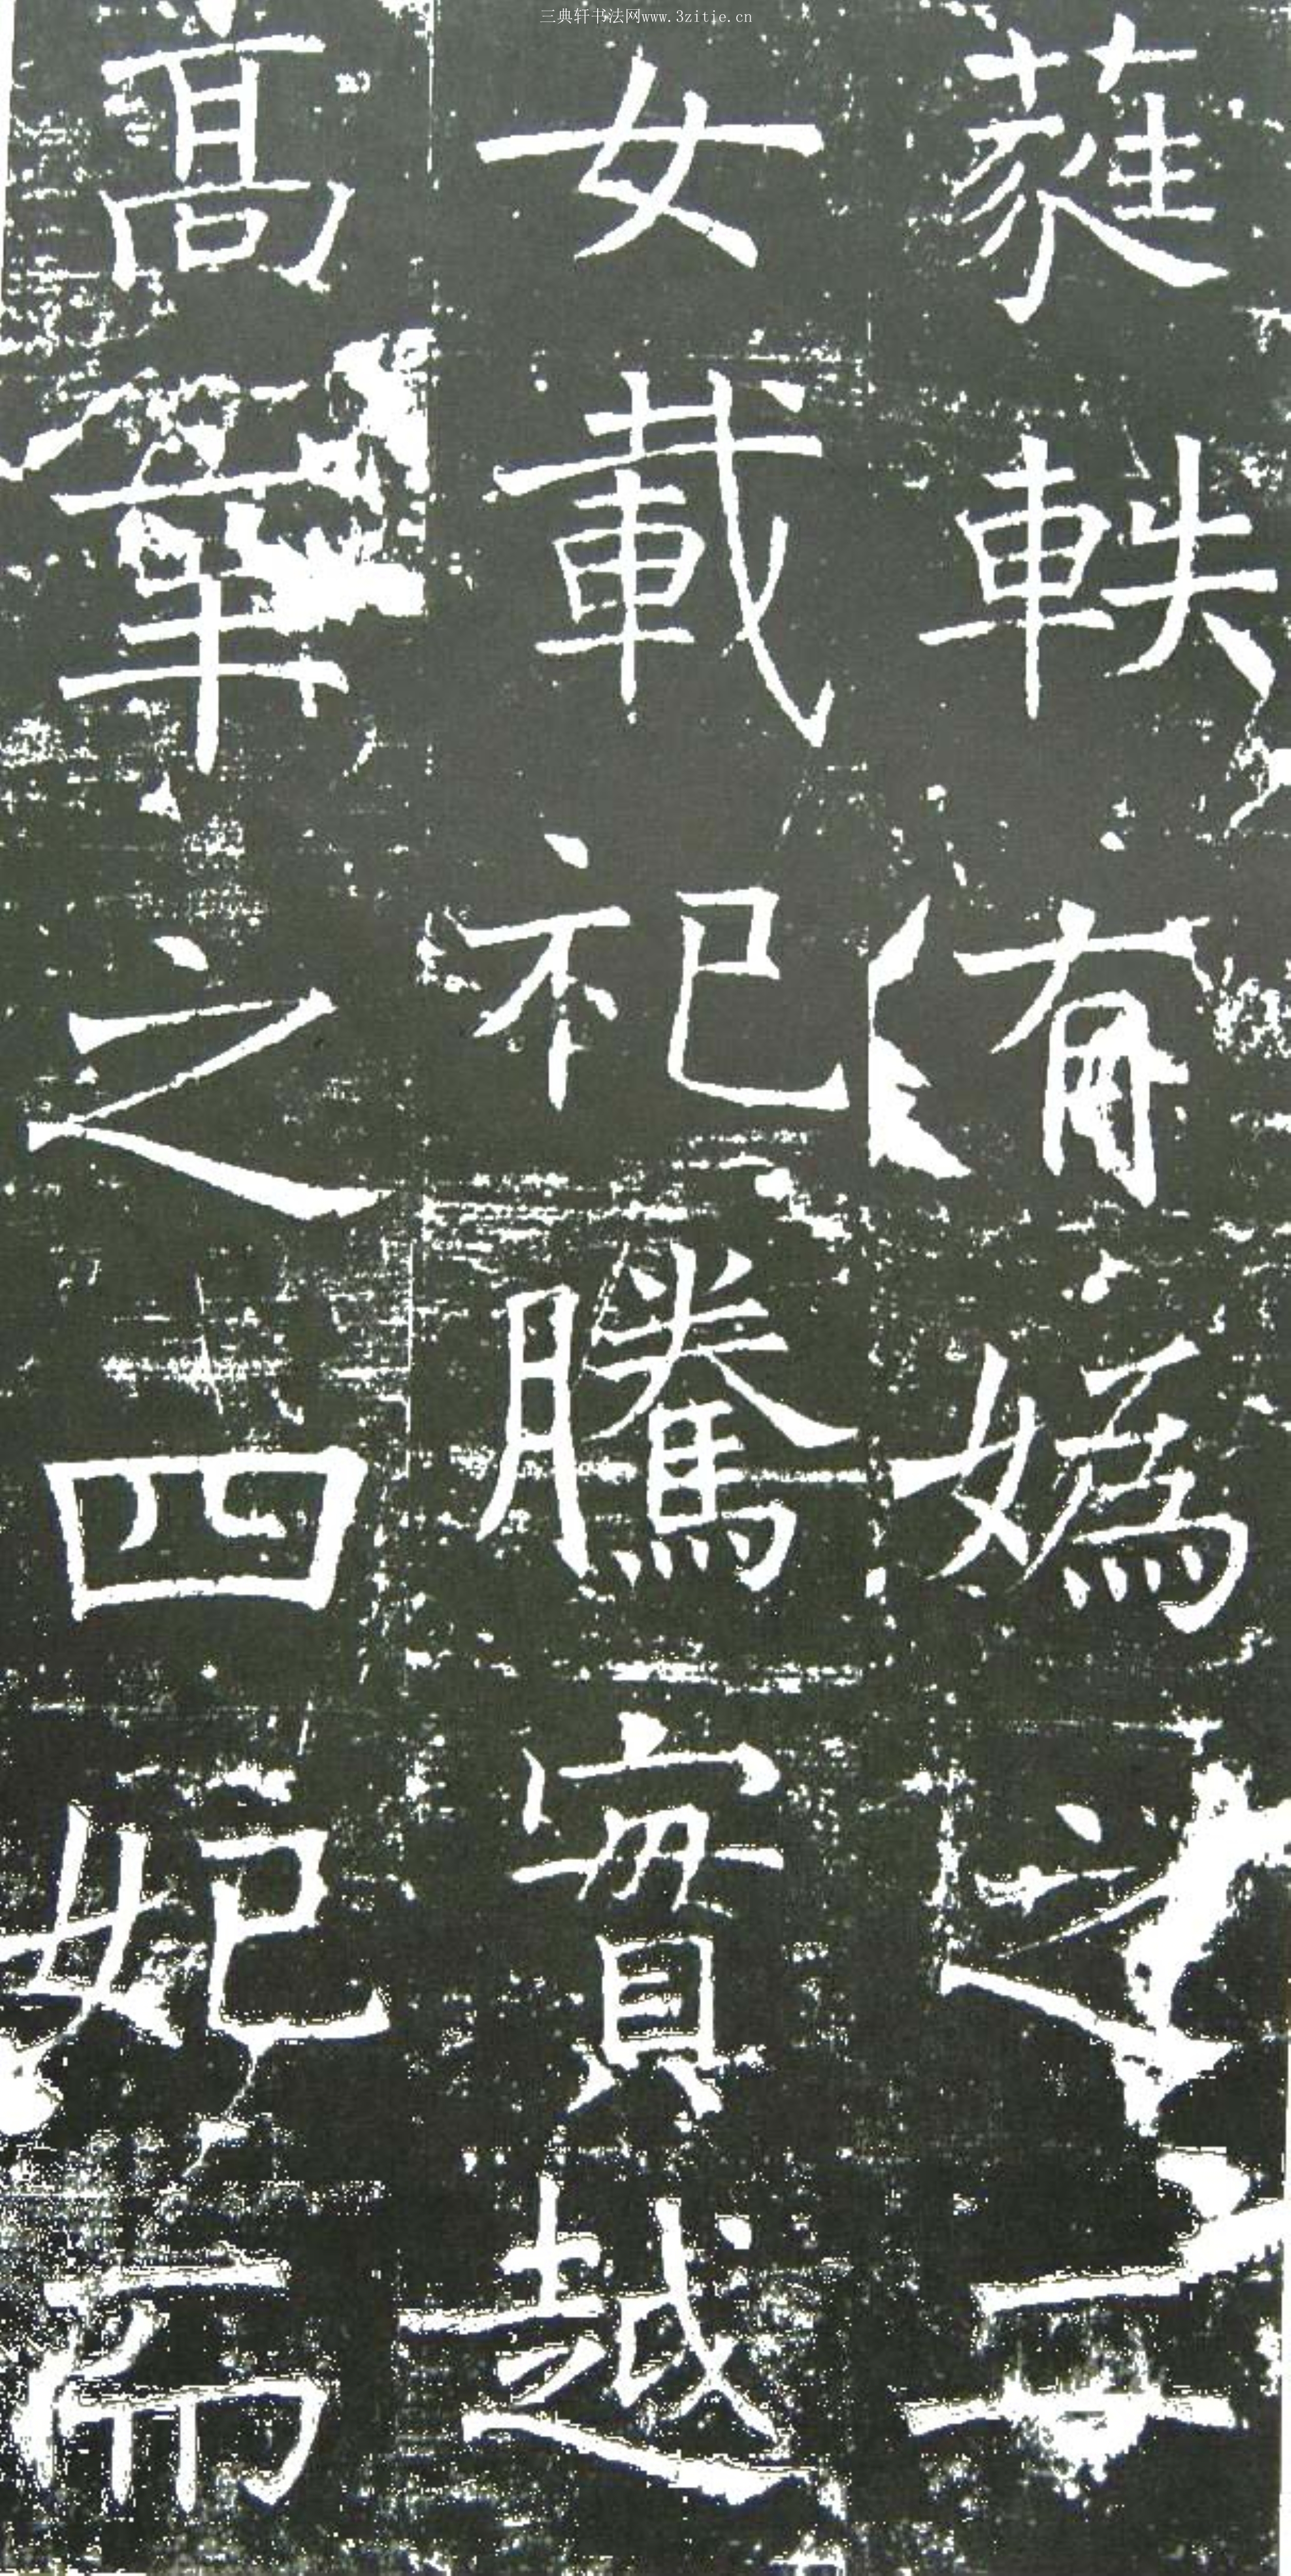 三典轩书法网www.3zitie.cn
蕤軼有媯之二
女載祀騰實越
高華之四妃而